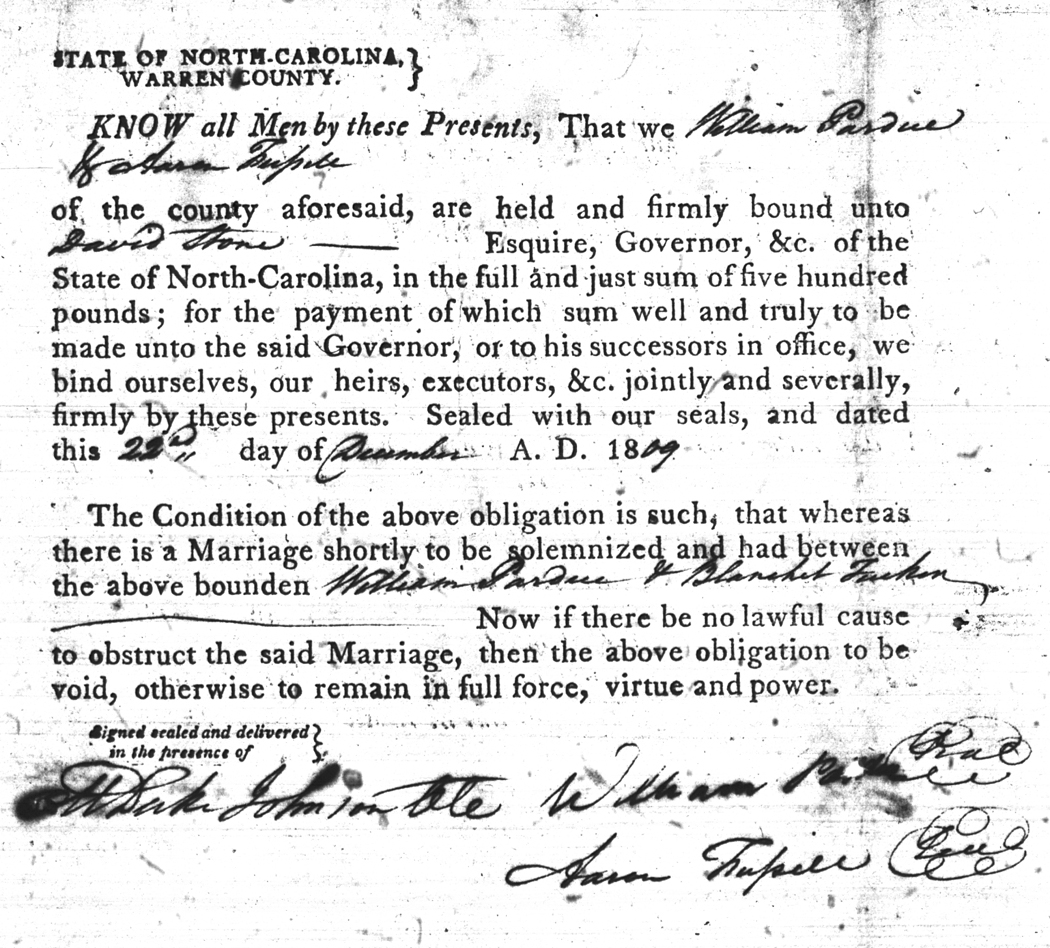 STATE OF NORTH-CAROLINA, }
WARREN COUNTY.
KNOW all Men by these Presents, That we William Pardue
& Aaron Fussell
of the county aforesaid, are held and firmly bound unto
David Stone — Esquire, Governor, &c. of the
State of North-Carolina, in the full and just sum of five hundred
pounds; for the payment of which sum well and truly to be
made unto the said Governor, or to his successors in office, we
bind ourselves, our heirs, executors, &c. jointly and severally,
firmly by these presents. Sealed with our seals, and dated
this 22d day of December A. D. 1809
The Condition of the above obligation is such, that whereas
there is a Marriage shortly to be solemnized and had between
the above bounden William Pardue & Blanchet
Now if there be no lawful cause
to obstruct the said Marriage, then the above obligation to be
void, otherwise to remain in full force, virtue and power.
Signed sealed and delivered }
in the presence of
Johnson William
Aaron Fussell Seal